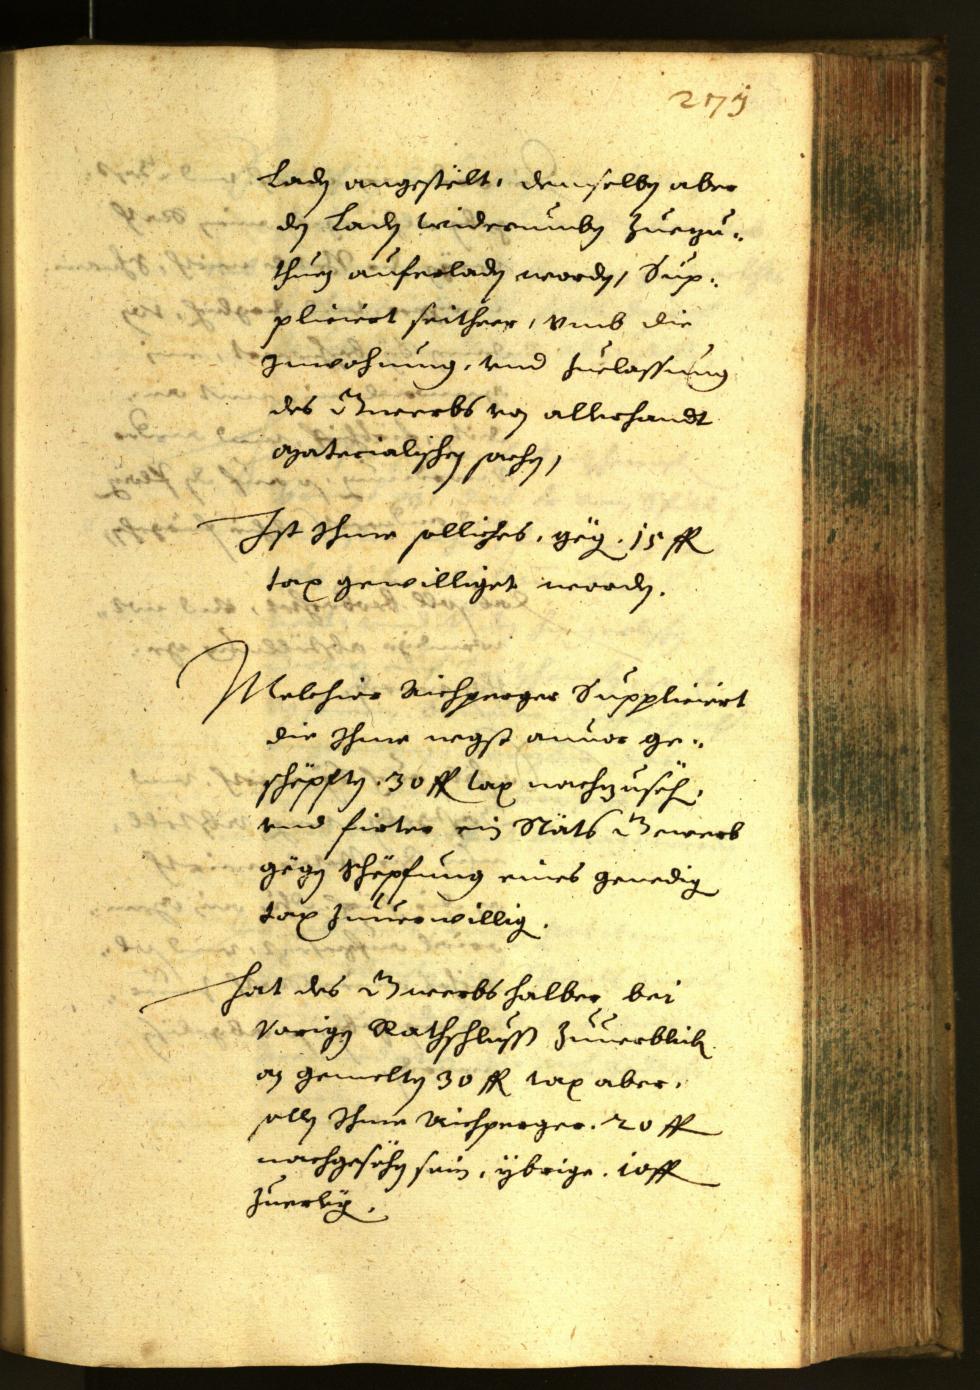 275
Laden angestelt, demselben aber
den Laden widerumben Zuezu-
thuen auferladen worden, Sup-
pliciert seither, vmb die
Inwohnung, vnd Zuelassung
des Gwerbs von allerhandt
materialischen sachen,
Ist Ihme solliches, gegen 15 fl
tax gewilliget worden.
Melchior Aichperger Suppliciert
die Ihme negst anuor ge-
schöpften 30 fl tax nachzusöhen,
vnd firter ein Stäts Gewerb
gegen Schöpfung eines genedigen
tax Zuuerwilligen.
Hat des Gwerbs halber bei
Vorigen Rathschluss Zuuerbleiben
an gemelten 30 fl tax aber,
sollen Ihme Aichperger 20 fl
nachgesöhen sein, ybrige 10 fl
Zuerlegen.